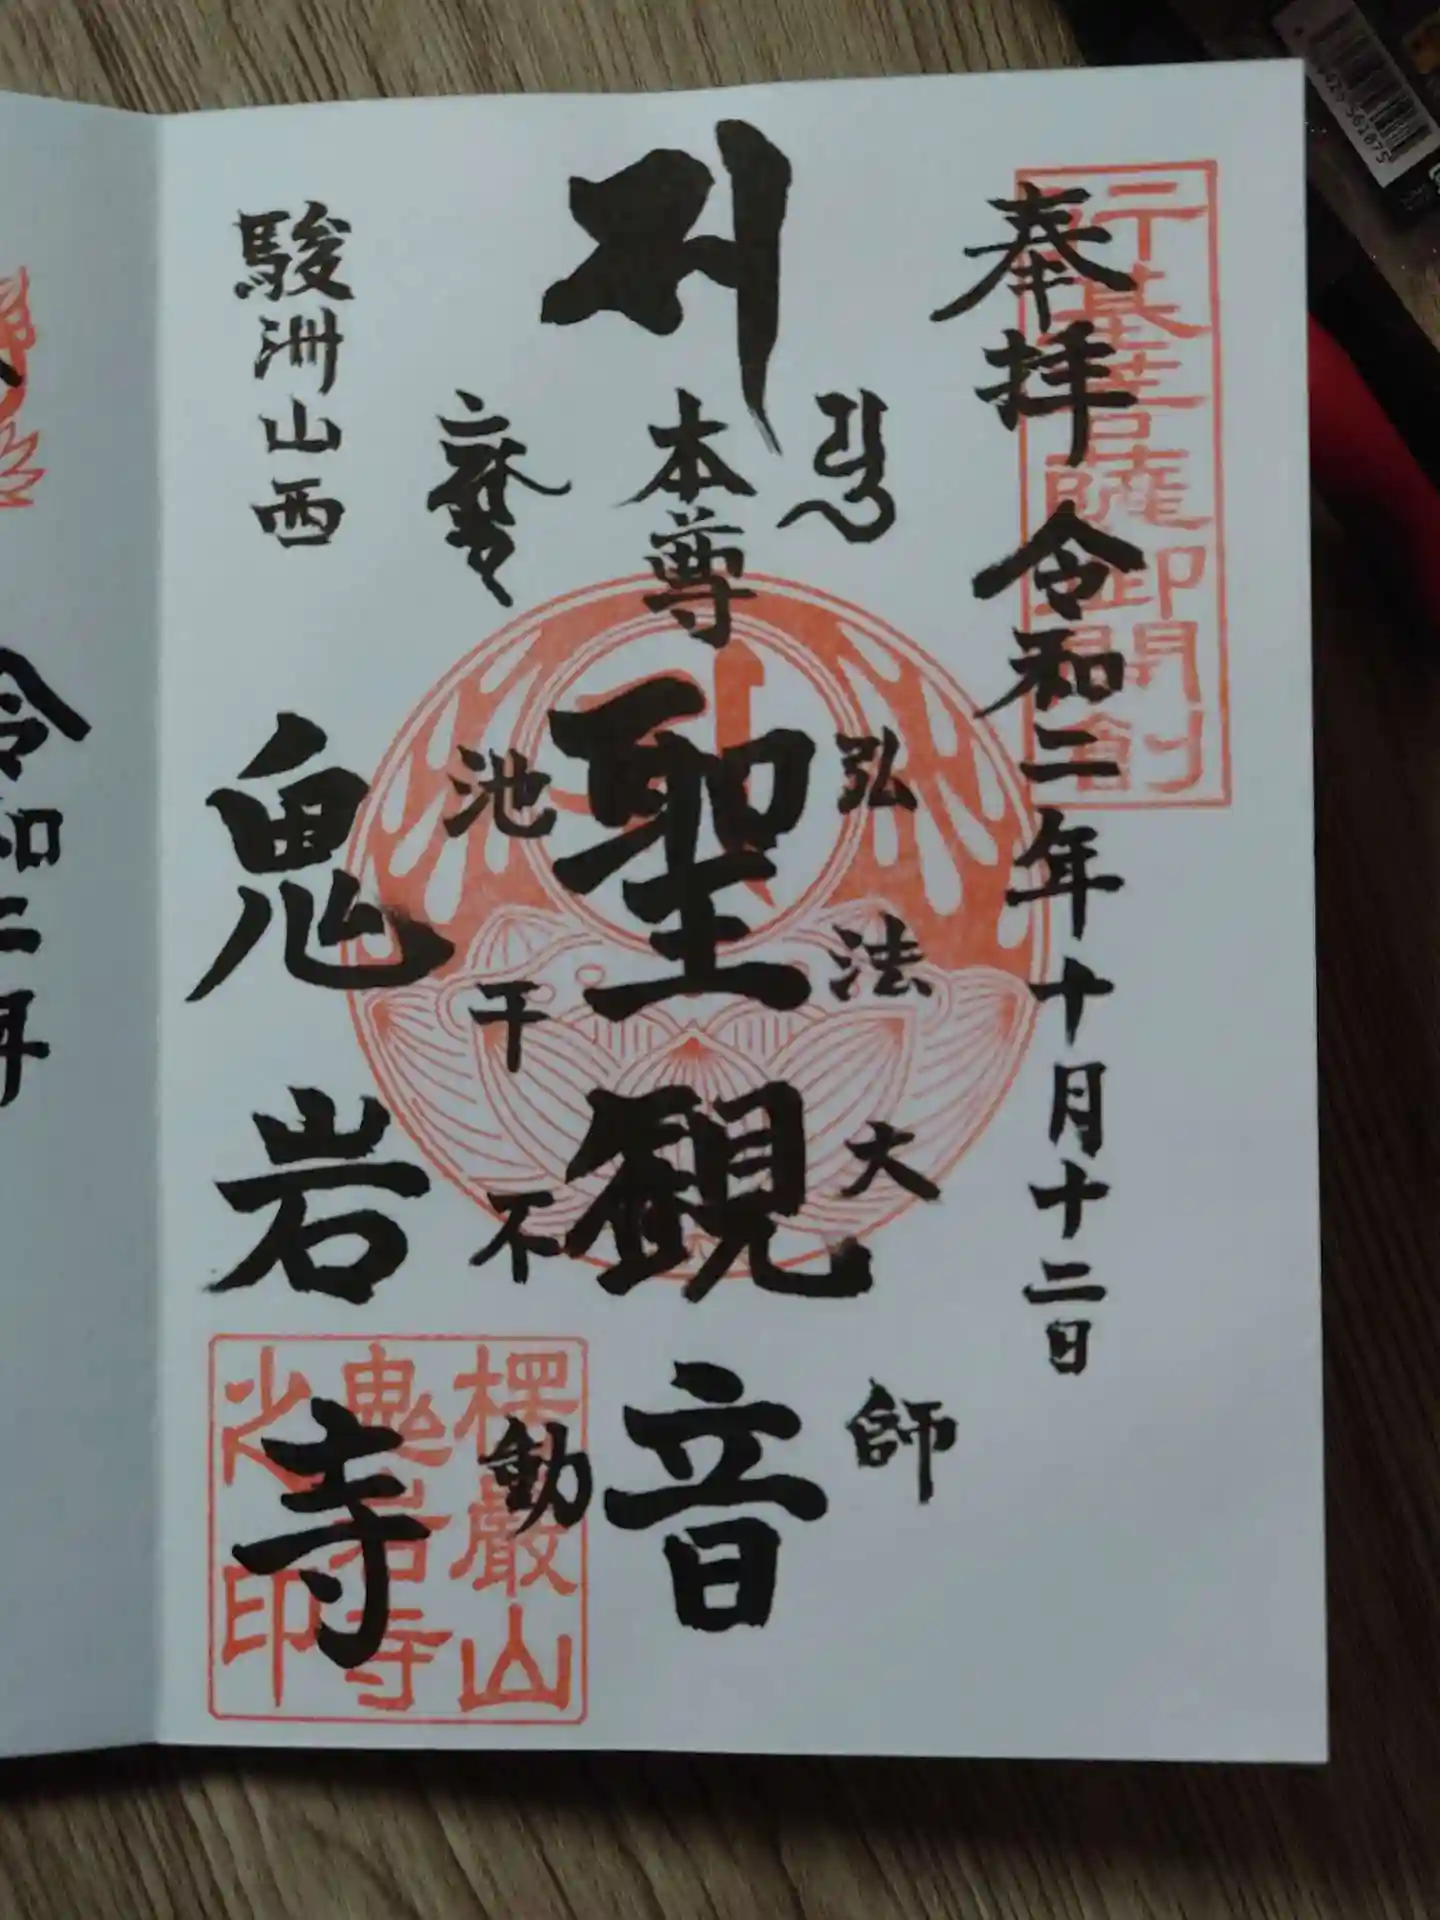 行基菩薩御開創
奉拝 令和二年十月十二日
弘法大師
本尊
聖観音
池干不動
駿洲山西
鬼岩寺
楞嚴山
鬼岩寺
之印
令和二年